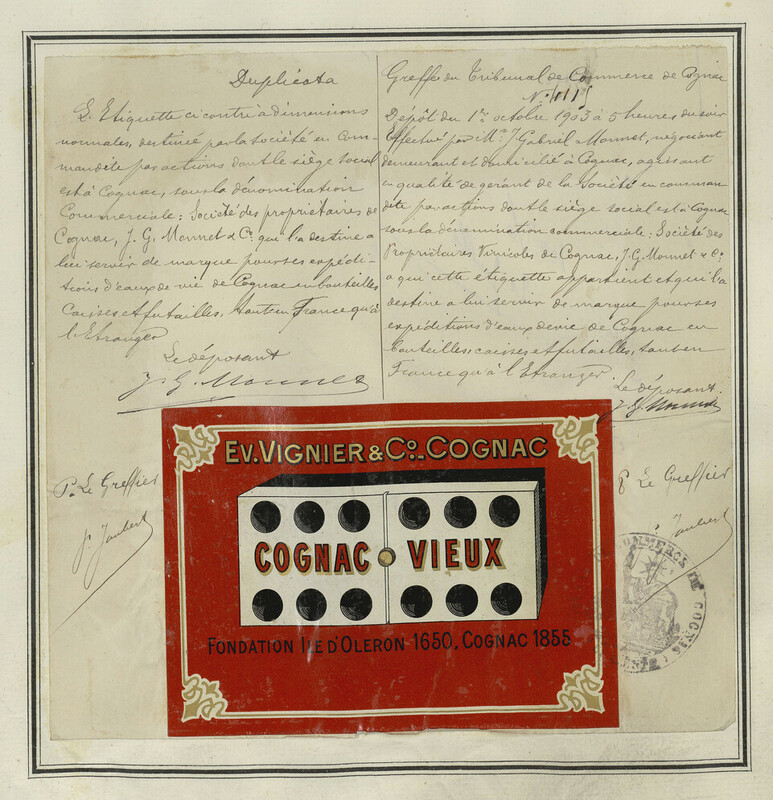 Duplicata
L'Etiquette ci contre à dimensions
normales, destinée par la société en Com-
mandite par actions dont le siège social
est à Cognac, sous la dénomination
Commerciale: Société des propriétaires de
Cognac, J. G. Monnet & Cie qui l'a destine a
lui servir de marque pour ses expédi-
tions d'eaux de vie de Cognac en bouteilles
caisses et futailles, tant en France qu'à
l'Etranger
Le déposant
J. G. Monnet
P. Le Greffier
Joubert
Greffe du Tribunal de Commerce de Cognac
Dépôt du 1er octobre 1903 à 5 heures du soir
Effectué par Mr J Gabriel Monnet, négociant
demeurant et domicilié à Cognac, agissant
en qualité de gérant de la Société en comman
dite par actions dont le siège social est à Cognac
sous la dénomination commerciale: Société des
Propriétaires Vinicoles de Cognac, J. G. Monnet & Cie
a qui cette étiquette appartient et qui l'a
destine a lui servir de marque pour ses
expéditions d'eaux de vie de Cognac en
bouteilles, caisses et futailles, tant en
France qu'à l'Etranger
Le déposant
J. G. Monnet
P Le Greffier
Joubert
COMMERCE DE COGNAC
EV. VIGNIER & CO. COGNAC
COGNAC VIEUX
FONDATION ILE D'OLERON 1650. COGNAC 1855